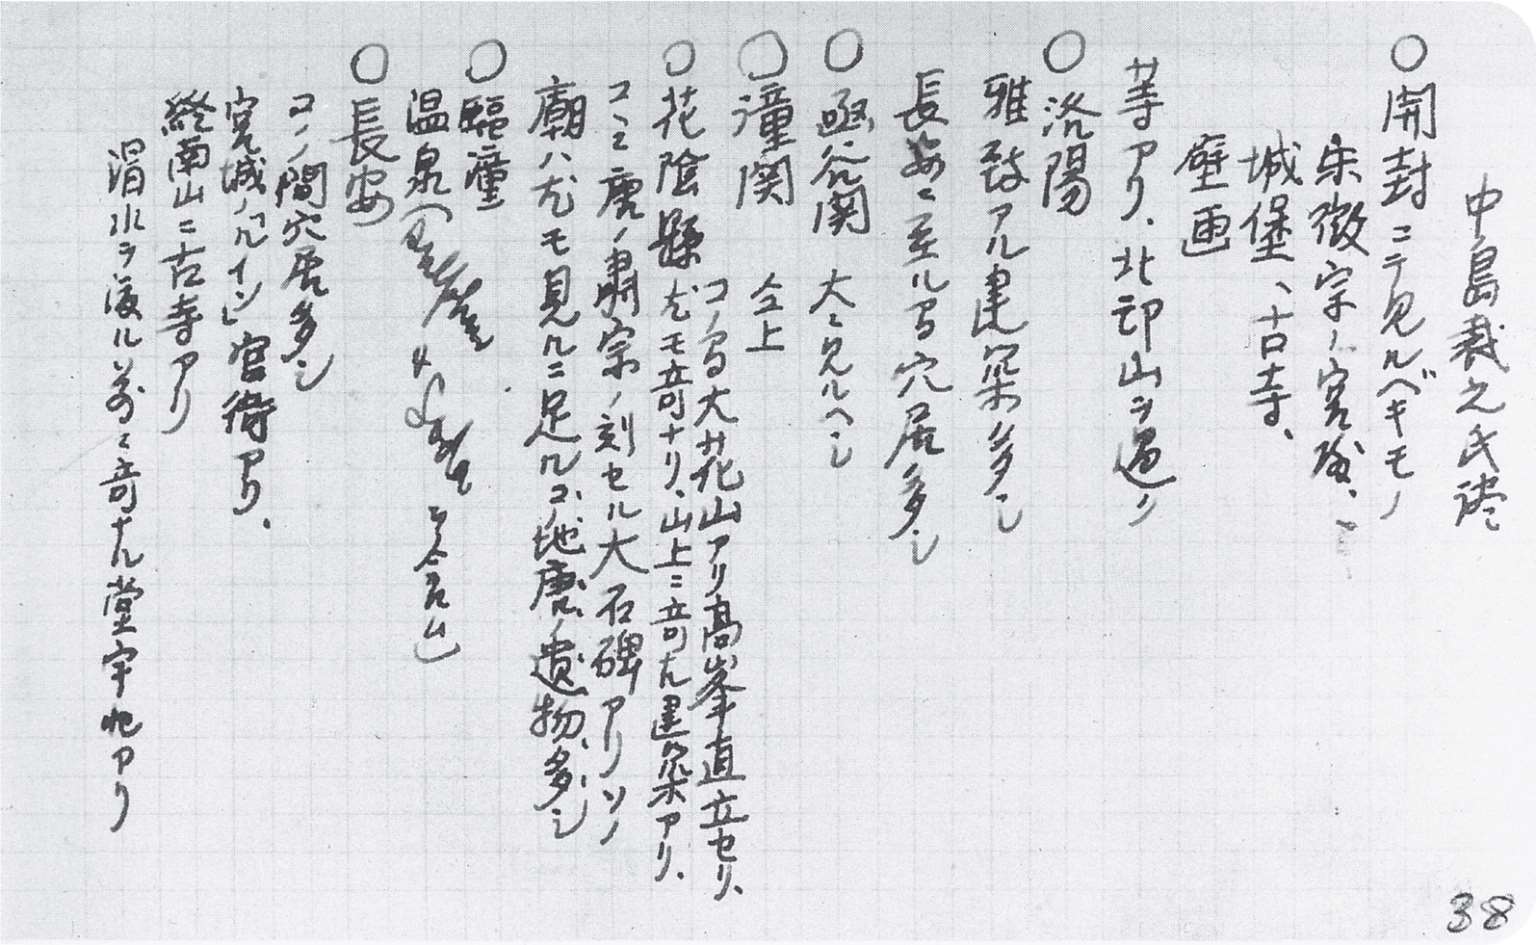 中島裁之氏談
○開封ニテ見ルベキモノ
宋徽宗ノ宮殿、
城堡、古寺、
壁画
等アリ、北邙山ヲ過リ
○洛陽
雅致アル建築多シ
長安ニ至ル間穴居多シ
○函谷関 大ニ見ルヘシ
○潼関 仝上
○花陰縣 尤モ奇ナリ、山上ニ奇ナル建築アリ、
コノ間大花山アリ高峯直立セリ、
コヽニ唐ノ粛宗ノ刻セル大石碑アリソノ
廟ハ尤モ見ルニ足ルコノ地唐ノ遺物多シ
○臨潼
温泉
○長安
コノ間穴居多シ
宮城ノ「ルイン」官衙アリ、
終南山ニ古寺アリ
渭水ヲ渡ル前ニ奇ナル堂宇アリ
38